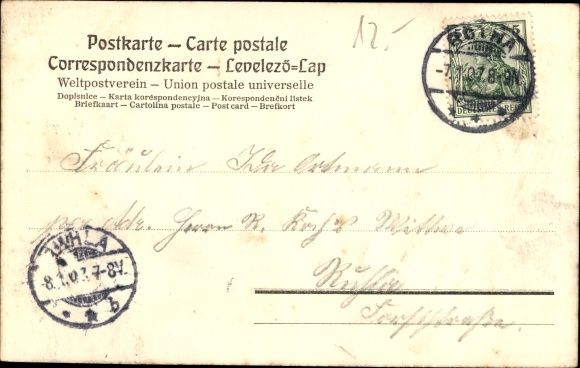 12.-
Postkarte – Carte postale
Correspondenzkarte – Levelező=Lap
Weltpostverein – Union postale universelle
Dopisnice – Karta korespondencyjna – Korespondenční lístek
Briefkaart – Cartolina postale – Post card – Brefkort
DEUTSCHES REICH
Fräulein Ida Ortmann
per Adr. Herrn R. Koch's Wittwe
RUHLA
8. 7-8V.
b
Ruhla
Forststraße.